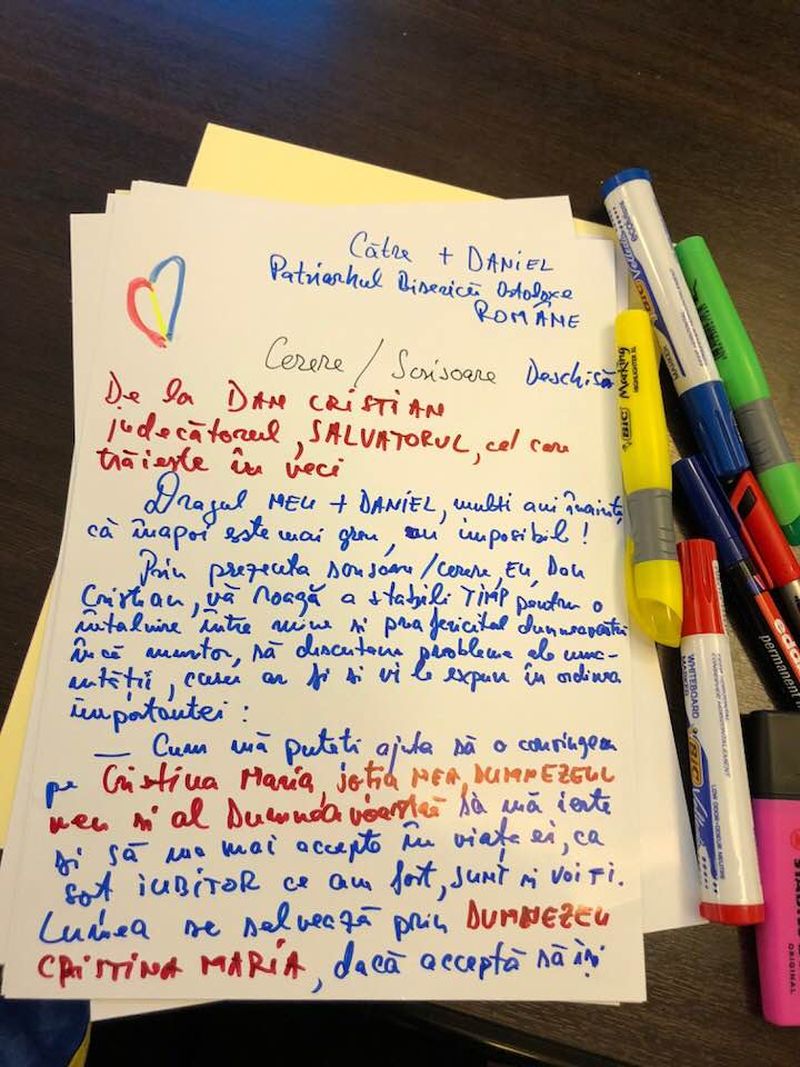 Către + DANIEL
Patriarhul Bisericii Ortodoxe
ROMÂNE
Cerere / Scrisoare Deschisă
De la DAN CRISTIAN
judecătorul, SALVATORUL, cel care
trăiește în veci
Dragul MEU + DANIEL, multi ani înainte,
că înapoi este mai greu, imposibil!
Prin prezenta scrisoare/cerere, Eu, Dan
Cristian, vă roagă a stabili TIMP pentru o
întalnire între mine si prea fericitul dumneavoastră
încă muritor, să discutam probleme ale uma-
nității, care ar fi si vi le expun în ordinea
importantei:
— Cum mă puteti ajuta să o convingem
pe Cristina Maria, MEA, DUMNEZEUL
meu si al Dumneavoastră să mă ierte
si să ma mai accepte în viața ei, ca
sot IUBITOR ce am fost, SUNT si VOI FI.
Lumea se salvează prin DUMNEZEU
CRISTINA MARIA, dacă acceptă să își
BIC Velleda
MARKER
BIC Marking
HIGHLIGHTER XL
edding
permanent
WHITEBOARD
MARKER
BIC Velleda
LOW ODOR
STABILO
ORIGINAL